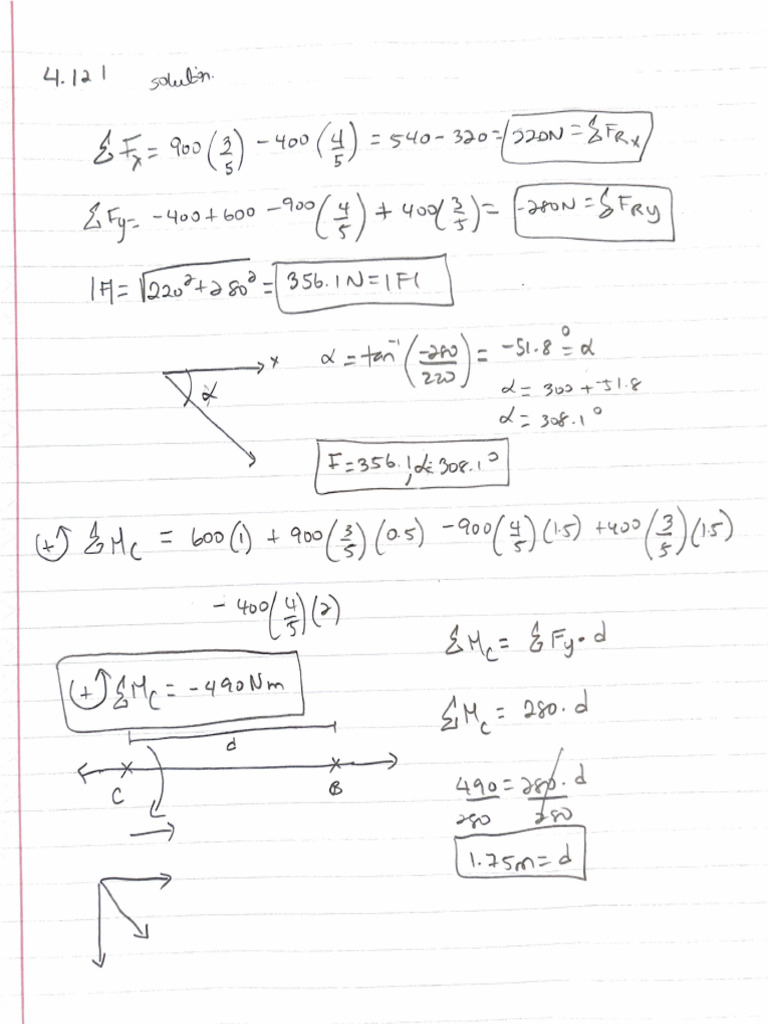 4.121 solution.
ΣFx = 900(3/5) - 400(4/5) = 540 - 320 = 220N = ΣFRx
ΣFy = -400 + 600 - 900(4/5) + 400(3/5) = -280N = ΣFRy
|F| = √220² + 280² = 356.1N = |F|
x
α
α = tan⁻¹(-280/220) = -51.8° = α
α = 300 + -51.8
α = 308.1°
F = 356.1, α = 308.1°
(+) ΣMc = 600(1) + 900(3/5)(0.5) - 900(4/5)(1.5) + 400(3/5)(1.5)
- 400(4/5)(2)
(+) ΣMc = -490Nm
d
C
B
ΣMc = ΣFy · d
ΣMc = 280 · d
490/280 = 280 · d/280
1.75m = d